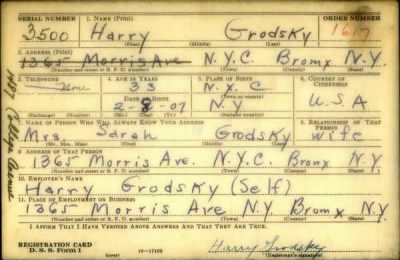 SERIAL NUMBER 1. NAME (Print) ORDER NUMBER
3500 Harry Grodsky 1617
(First) (Middle) (Last)
2. ADDRESS (Print)
1365 Morris Ave N.Y.C. Bronx N.Y.
(Number and street or R. F. D. number) (Town) (County) (State)
1487 College Avenue
3. TELEPHONE 4. AGE IN YEARS 5. PLACE OF BIRTH 6. COUNTRY OF CITIZENSHIP
None 33 N.Y.C.
DATE OF BIRTH (Town or county)
2-8-07 N.Y U.S.A
(Exchange) (Number) (Mo.) (Day) (Yr.) (State or country)
7. NAME OF PERSON WHO WILL ALWAYS KNOW YOUR ADDRESS 8. RELATIONSHIP OF THAT PERSON
Mrs. Sarah Grodsky wife
(Mr., Mrs., Miss) (First) (Middle) (Last)
9. ADDRESS OF THAT PERSON
1365 Morris Ave. N.Y.C. Bronx N.Y
(Number and street or R. F. D. number) (Town) (County) (State)
10. EMPLOYER'S NAME
Harry Grodsky (Self)
11. PLACE OF EMPLOYMENT OR BUSINESS
1365 Morris Ave N.Y. Bronx N.Y.
(Number and street or R. F. D. number) (Town) (County) (State)
I AFFIRM THAT I HAVE VERIFIED ABOVE ANSWERS AND THAT THEY ARE TRUE.
REGISTRATION CARD
D. S. S. Form 1 16—17105 Harry Grodsky
(Registrant's signature)